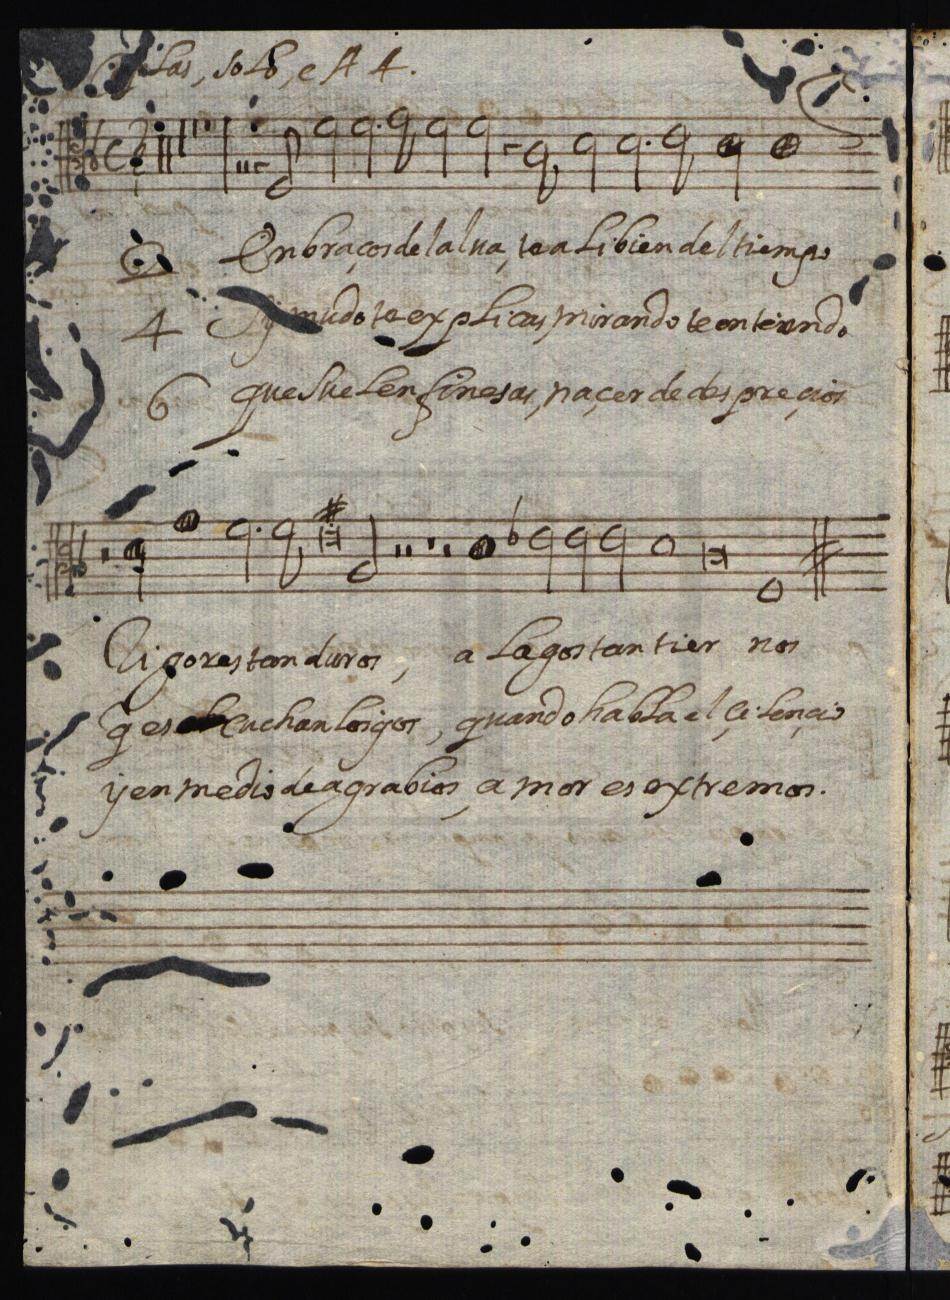 Coplas, solo, e A 4.
2 En braços de la lua, te a libiendel tiempo
4 mudo te explicas mirando te entiendo
6 que suelen finesas, naçer de despreçios
Rigores tan duros, a lagos tan tier nos
q̃ es Cuchan los ojos, quando habla el çilençio
y en medio de agrabios, amor es extremos.